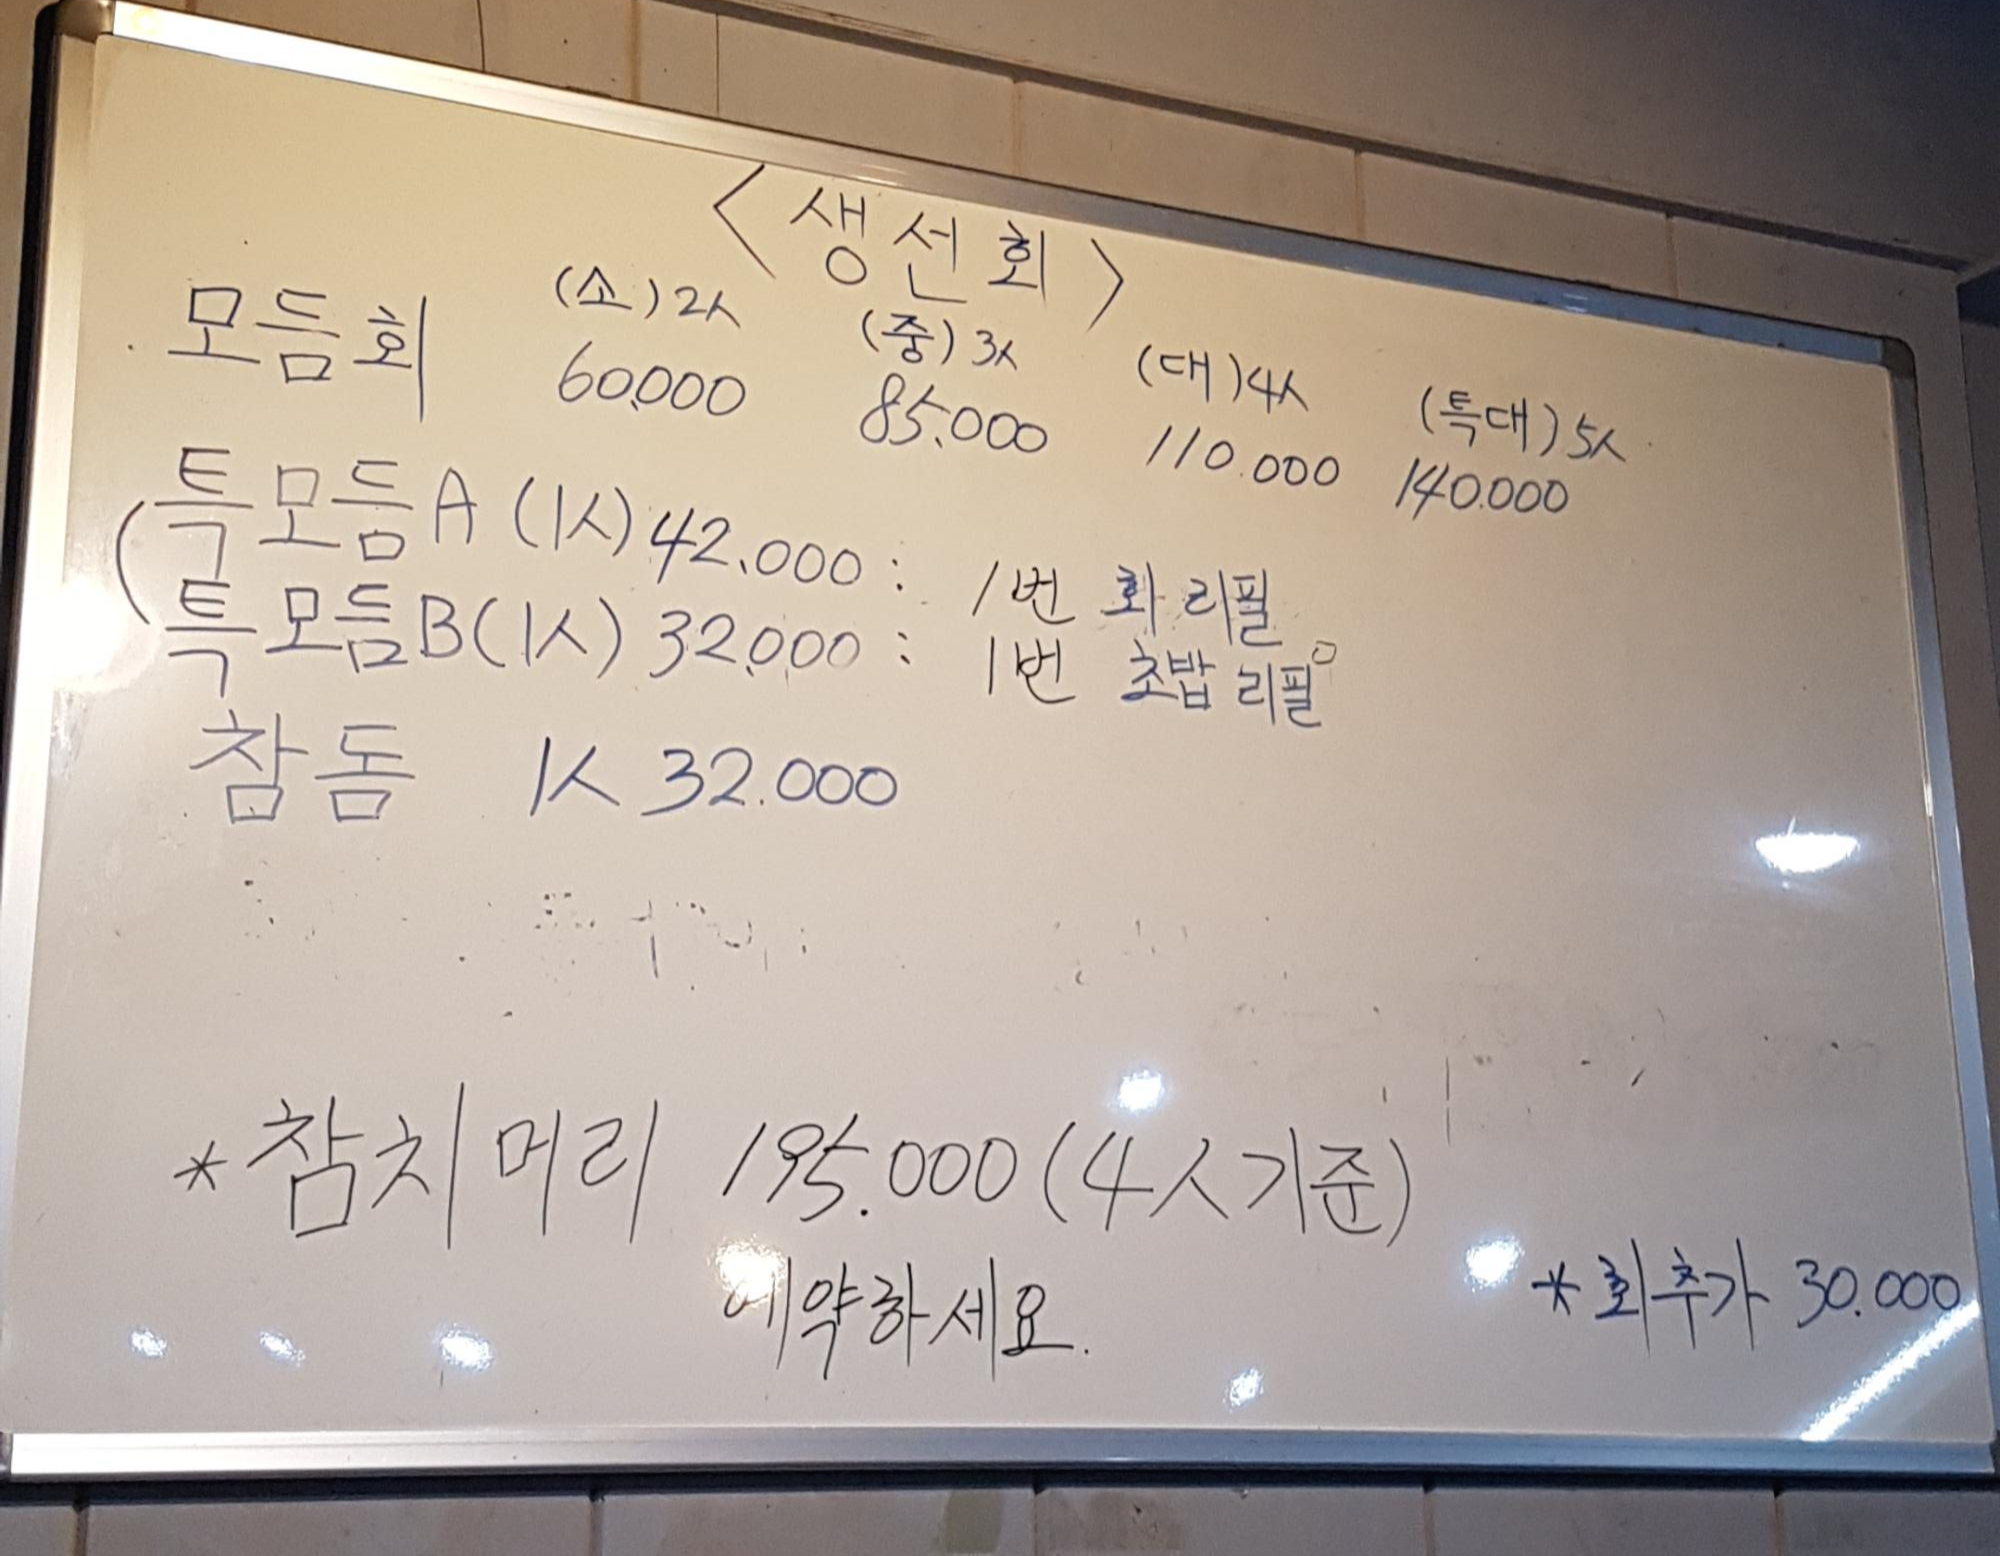 <생선회>
모듬회 (소)2人 (중)3人 (대)4人 (특대)5人
60.000 85.000 110.000 140.000
(특모듬A (1人) 42.000: 1번 회 리필
특모듬B (1人) 32.000: 1번 초밥 리필
참돔 1人 32.000
*참치머리 195.000 (4人기준)
예약하세요.
*회추가 30.000